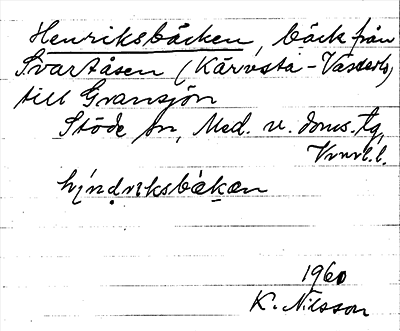 Henriksbäcken, bäck från
Svartåsen (Kärvsta-
till Gransjön
Stöde sn, Med. v. doms. tg,
Vnrl. l.
hı̣ndriksbäkan
1960
K. Nilsson